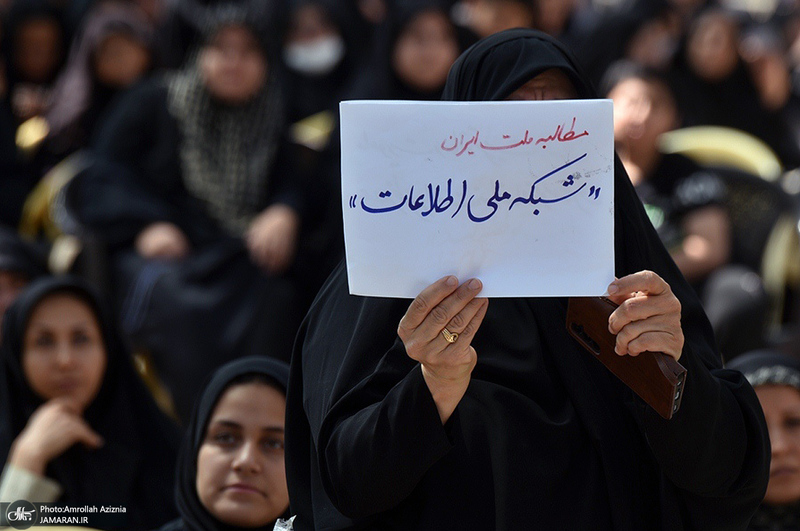 مطالبه ملت ایران
"شبکه ملی اطلاعات"
Photo:Amrollah Aziznia
JAMARAN.IR